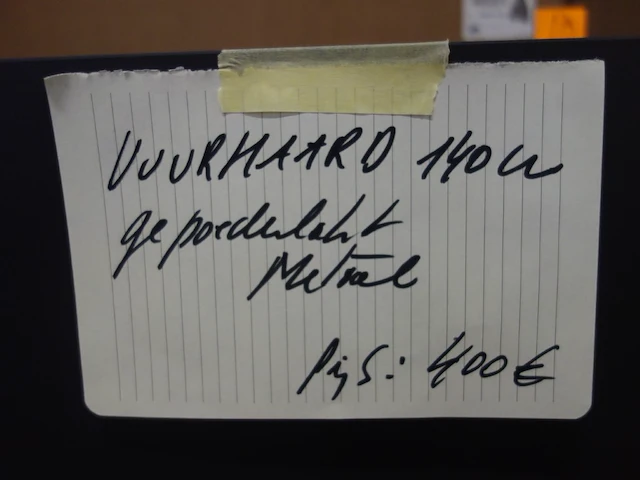 VUURHAARD 140cm
gepoederlakt
Metaal
Prijs: 400€